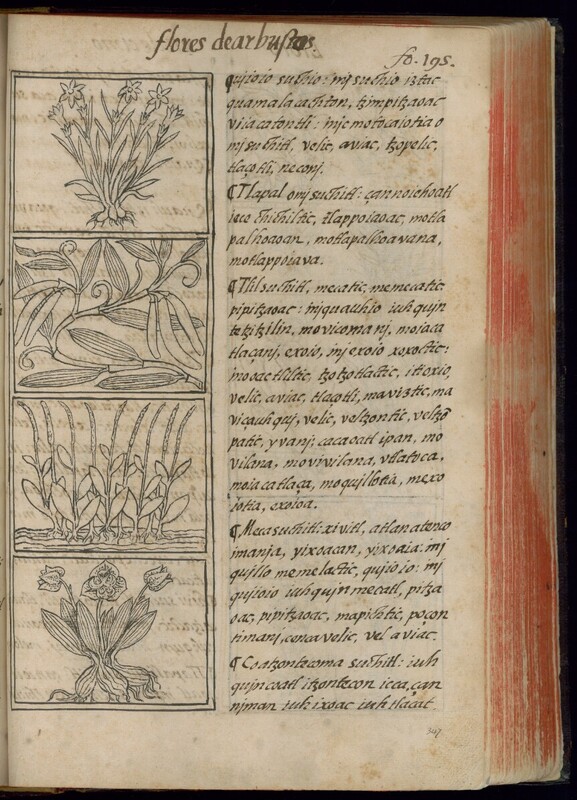 flores de arbustos.
fo. 195.
quijoio suchio: inj suchio iztac
quamalacachton, tzimpitzaoac
viiacatontli: injc motocaiotia o
mjsuchitl, velic, aviac, tzopelic,
tlaçotli, neconj.
¶ Tlapal omjsuchitl: çannoiehoatl
iece chichiltic, tlappoiaoac, motla
palhoaoan, motlapalhoavana,
motlappoiava.
¶ Tlilsuchitl, mecatic, memecatic
pipitzaoac: inj quauhio iuhqujn
tetzitzilin, movicomanj, moiaca
tlaçanj, exoio, inj exoio xoxoctic:
inooac tliltic, tzotzotlactic, itexio
velic, aviac, tlaçotli, maviztic, ma
vicauhquj, velic, veltzontic, veltzō
patic, yvanj; cacaoatl ipan, mo
vilana, movivilana, vtlatoca,
moiacatlaça, moquillotia, mexo
iotia, exoioa.
¶ Mecasuchitl: xivitl, atlan atenco
imanja, yixoacan, yixoaia: inj
quillo memelactic, quioio: inj
quioio iuhqujn mecatl, pitza
oac, pipitzaoac, mapichtic, poçon
timanj, cenca velic, vel aviac.
¶ Coatzontecoma suchitl: iuh
qujn coatl itzontecon ieca, çan
njman iuh ixoac iuh tlacat
347